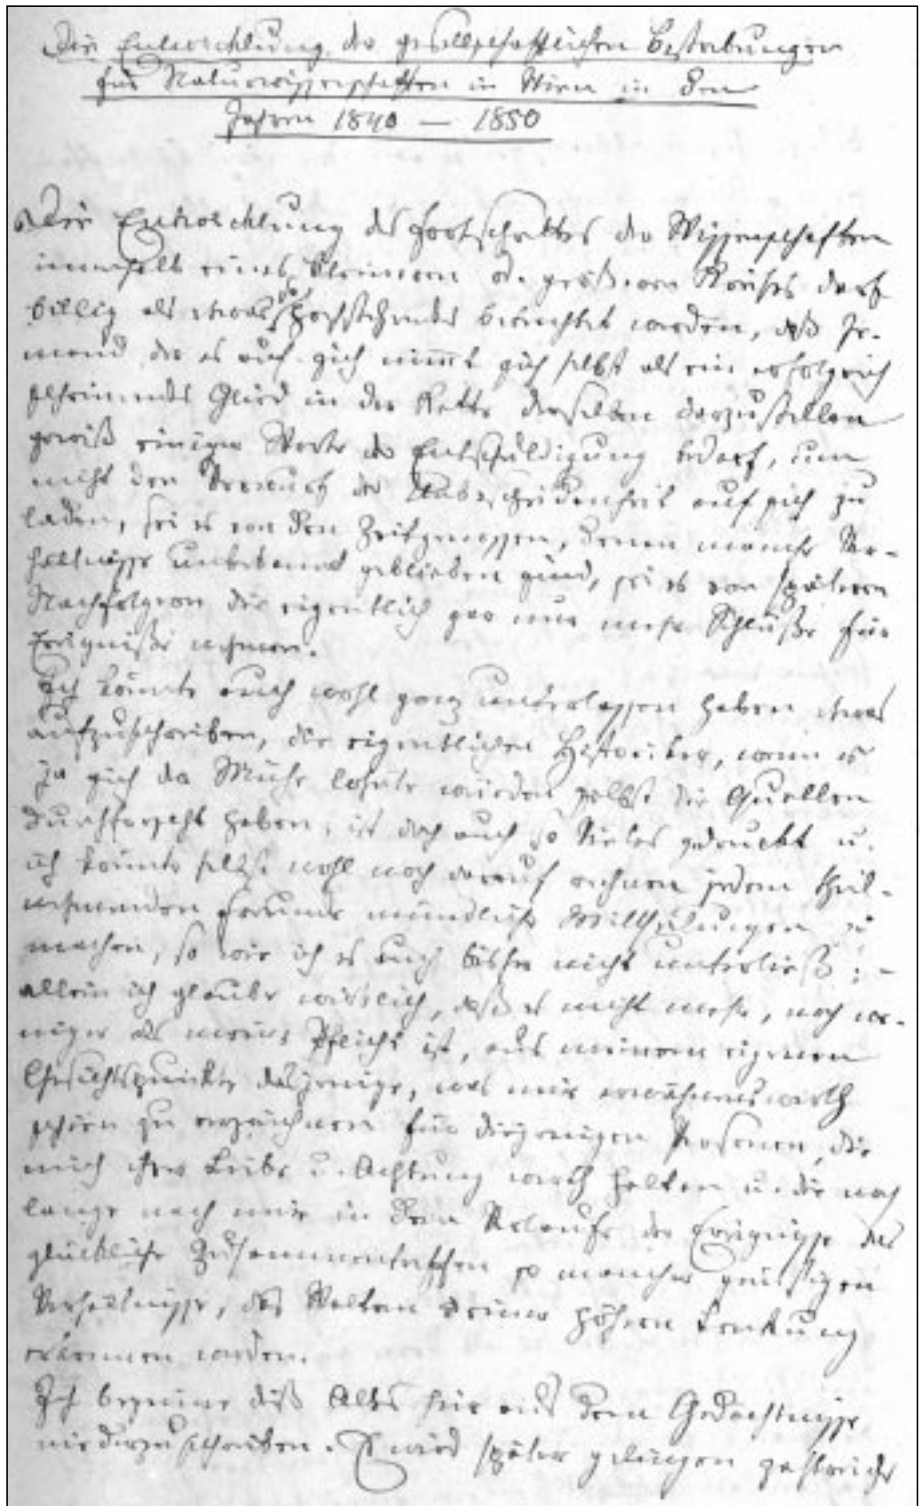 Die Entwicklung der gesellschaftlichen Bestrebungen
für Naturwissenschaften in Wien in den
Jahren 1840 — 1850
Die Entwicklung des Fortschrittes der Wissenschaften
innerhalb eines kleinern od. größern Kreises darf
billig als etwas so Hochstehendes betrachtet werden, daß Je-
mand der es auf sich nimmt sich selbst als ein erfolgreich
scheinendes Glied in der Kette derselben darzustellen
gewiß einiger Worte der Entschuldigung bedarf, um
nicht den Vorwurf der Unbescheidenheit auf sich zu
laden, sei es von den Zeitgenossen, denen manche Ver-
hältnisse unbekannt geblieben sind, sei es von spätern
Nachfolgern die eigentlich gar nur mehr Schlüße für
Ereigniße nehmen.
Ich könnte auch wohl ganz unterlassen haben etwas
aufzuschreiben, die eigentlichen Historiker, wenn es
ja sich der Mühe lohnte würden selbst die Quellen
durchforscht haben, ist doch auch so Vieles gedruckt u.
ich könnte selbst wohl noch darauf rechnen jedem theil-
nehmenden Freunde mündliche Mittheilungen zu
machen, so wie ich es auch bisher nicht unterließ; –
allein ich glaube wirklich, daß es nicht mehr, noch we-
niger als meine Pflicht ist, aus meinem eigenen
Gesichtspunkte dasjenige, was mir erwähnenswerth
schien zu verzeichnen für diejenigen Personen, die
mich ihrer Liebe u. Achtung werth halten u. die noch
lange nach mir in dem Verlaufe der Ereignisse das
glückliche Zusammentreffen so mancher günstigen
Verhältnisse, das Walten einer höhern Lenkung
erkennen werden.
Ich beginne dieß Alles hier aus dem Gedächtnisse
niederzuschreiben. Es wird später gelingen zahlreiche